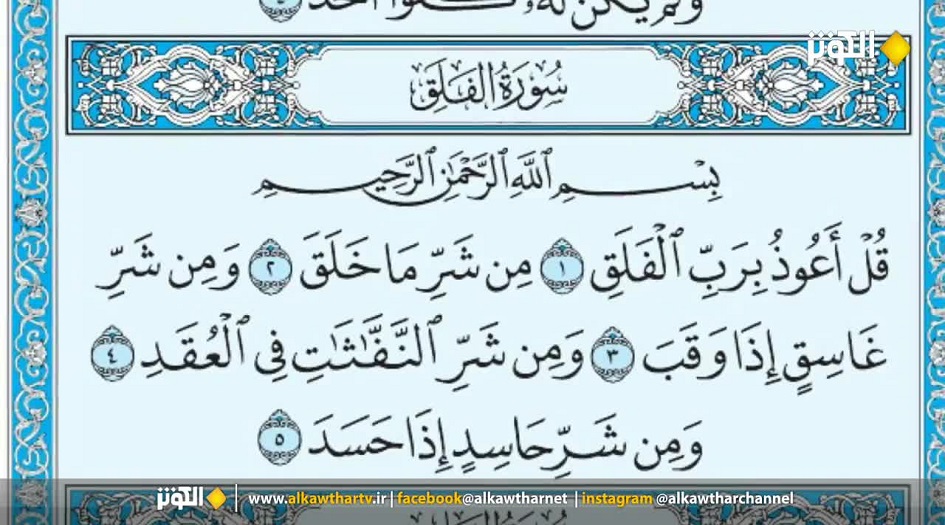 وَلَمْ يَكُن لَّهُۥ كُفُوًا أَحَدٌۢ ٤
الكوثر
سُورَةُ الفَلَقِ
بِسْمِ ٱللَّهِ ٱلرَّحْمَٰنِ ٱلرَّحِيمِ
قُلْ أَعُوذُ بِرَبِّ ٱلْفَلَقِ ١ مِن شَرِّ مَا خَلَقَ ٢ وَمِن شَرِّ
غَاسِقٍ إِذَا وَقَبَ ٣ وَمِن شَرِّ ٱلنَّفَّٰثَٰتِ فِى ٱلْعُقَدِ ٤
وَمِن شَرِّ حَاسِدٍ إِذَا حَسَدَ ٥
الكوثر | www.alkawthartv.ir | facebook@alkawtharnet | instagram @alkawtharchannel